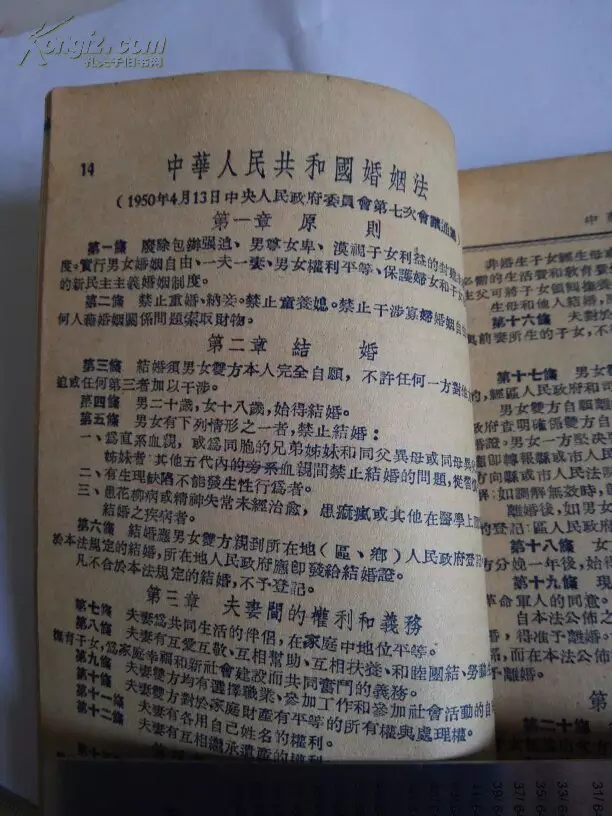 Kongfz.com
孔夫子旧书网
14
中華人民共和國婚姻法
(1950年4月13日中央人民政府委員會第七次會議通過)
第一章 原 則
第一條 廢除包辦强迫、男尊女卑、漠視子女利益的封建
度。實行男女婚姻自由、一夫一妻、男女權利平等、保護婦女和子女
的新民主主義婚姻制度。
第二條 禁止重婚、納妾。禁止童養媳。禁止干涉寡婦婚姻自
何人藉婚姻關係問題索取財物。
第二章 結 婚
第三條 結婚須男女雙方本人完全自願,不許任何一方對他
迫或任何第三者加以干涉。
第四條 男二十歲,女十八歲,始得結婚。
第五條 男女有下列情形之一者,禁止結婚:
一、爲直系血親,或爲同胞的兄弟姊妹和同父異母或同母異
姊妹者;其他五代內的旁系血親間禁止結婚的問題,從習
二、有生理缺陷不能發生性行爲者。
三、患花柳病或精神失常未經治愈,患痲瘋或其他在醫學上
結婚之疾病者。
第六條 結婚應男女雙方親到所在地(區、鄉)人民政府登記
於本法規定的結婚,所在地人民政府應卽發給結婚證。
凡不合於本法規定的結婚,不予登記。
第三章 夫妻間的權利和義務
第七條 夫妻爲共同生活的伴侶,在家庭中地位平等。
第八條 夫妻有互愛互敬、互相幫助、互相扶養、和睦團結、勞動
撫育子女,爲家庭幸福和新社會建設而共同奮鬥的義務。
第九條 夫妻雙方均有選擇職業、參加工作和參加社會活動的自
第十條 夫妻雙方對於家庭財產有平等的所有權與處理權。
第十一條 夫妻有各用自己姓名的權利。
第十二條 夫妻有互相繼承遺產的權利。
第三章
中
非婚生子女經生母或
必需的生活費和教育費
生父可將子女領回撫養
生母和他人結婚,
第十六條 夫對於
其前妻所生的子女,不
第十七條 男女
經區人民政府和
男女雙方自願離
政府查明確係雙方
婚證。男女一方堅決
卽轉報縣或市人民
方向縣或市人民法
;如調解無效時,卽
離婚後,如男女
的登記;區人民政
第十八條 女
方分娩一年後,始
第十九條 現
革命軍人的同意。
自本法公佈之
,得准予離婚
而在本法公佈
予離婚。
第
第二十條